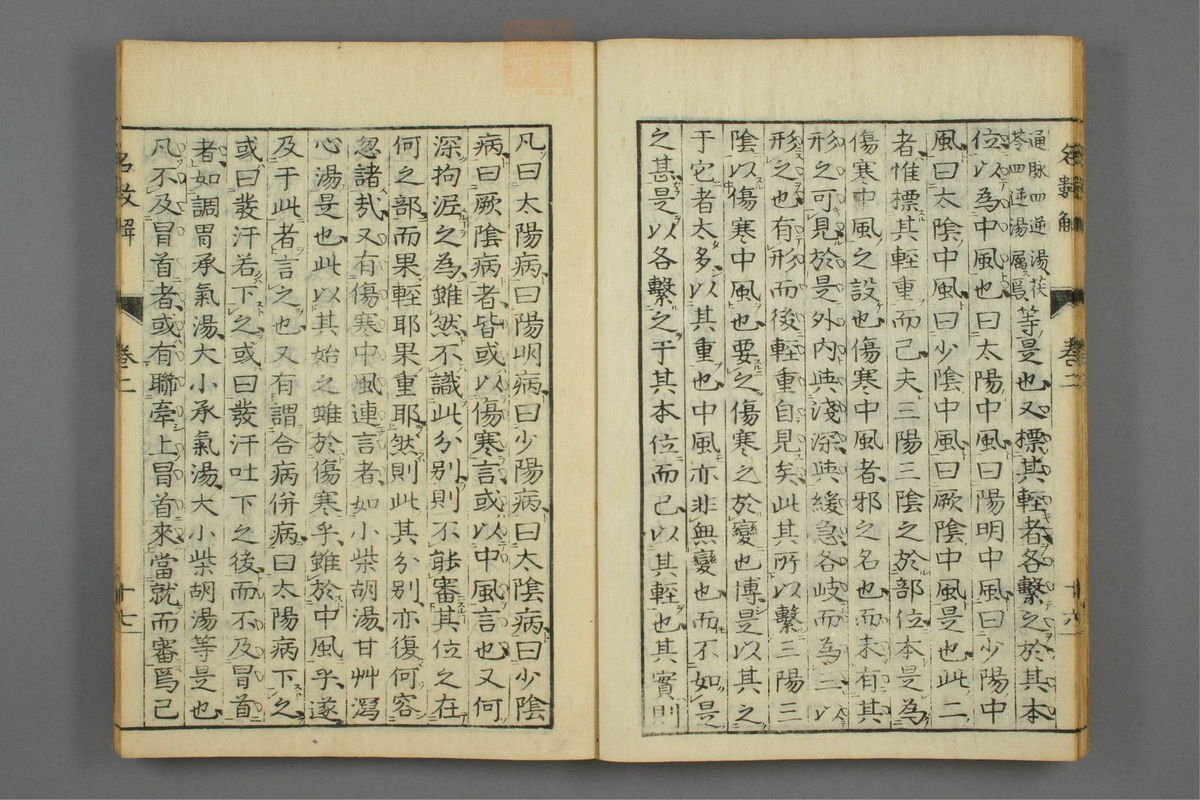 通脉四逆湯茯
苓四逆湯屬焉
等是也又標其輕者各繫之於其本
位以為中風也曰太陽中風曰陽明中風曰少陽中
風曰太陰中風曰少陰中風曰厥陰中風是也此二
者惟標其輕重而已夫三陽三陰之於部位本是為
傷寒中風之設也傷寒中風者邪之名也而未有其
形之可見於是外內與淺深與緩急各岐而為三以
形之也有形而後輕重自見矣此其所以繫三陽三
陰以傷寒中風也要之傷寒之於變也博是以其之
于它者太多以其重也中風亦非無變也而不如是
之甚是以各繫之于其本位而已以其輕也其實則
名數解
卷二
十六
凡曰太陽病曰陽明病曰少陽病曰太陰病曰少陰
病曰厥陰病者皆或以傷寒言或以中風言也又何
深拘泥之為雖然不識此分別則不能審其位之在
何之部而果輕耶果重耶然則此其分別亦復何容
忽諸哉又有傷寒中風連言者如小柴胡湯甘艸瀉
心湯是也此以其始之雖於傷寒乎雖於中風乎遂
及于此者言之也又有謂合病併病曰太陽病下之
或曰發汗若下之或曰發汗吐下之後而不及冒首
者如調胃承氣湯大小承氣湯大小柴胡湯等是也
凡不及冒首者或有聯牽上冒首來當就而審焉已
名數解
卷二
十七